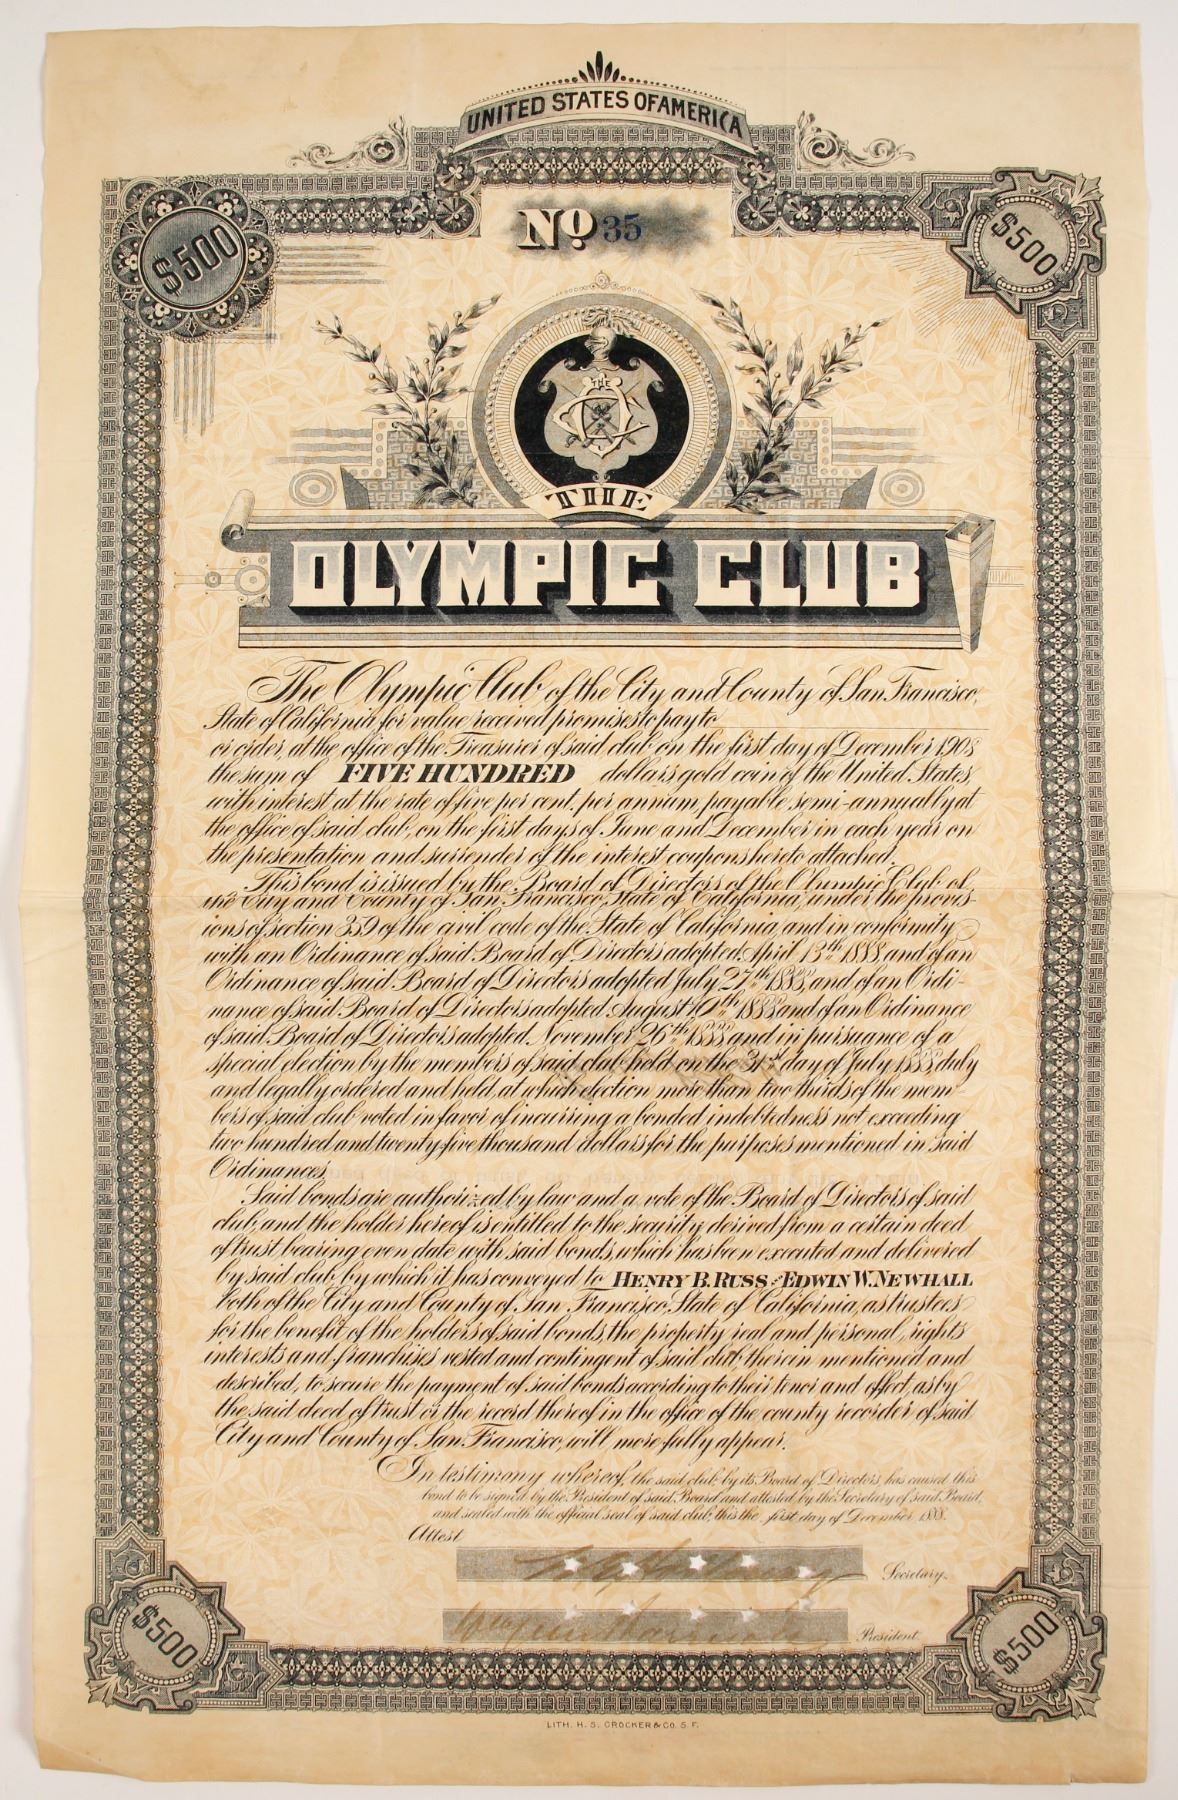 UNITED STATES OF AMERICA
$500
No 35
$500
THE
THE
OLYMPIC CLUB
The Olympic Club of the City and County of San Francisco,
State of California, for value received promises to pay to
or order, at the office of the Treasurer of said club on the first day of December 1908
the sum of FIVE HUNDRED dollars gold coin of the United States,
with interest at the rate of five per cent. per annum, payable semi-annually at
the office of said club, on the first days of June and December in each year on
the presentation and surrender of the interest coupons hereto attached.
This bond is issued by the Board of Directors of the Olympic Club of
the City and County of San Francisco, State of California, under the provis-
ions of section 359 of the civil code of the State of California, and in conformity
with an Ordinance of said Board of Directors adopted April 13th 1888, and of an
Ordinance of said Board of Directors adopted July 27th 1888, and of an Ordi-
nance of said Board of Directors adopted August 10th 1888 and of an Ordinance
of said Board of Directors adopted November 26th 1888 and in pursuance of a
special election by the members of said club held on the 31st day of July 1888, duly
and legally ordered and held, at which election more than two thirds of the mem
bers of said club voted in favor of incurring a bonded indebtedness not exceeding
two hundred and twenty-five thousand dollars for the purposes mentioned in said
Ordinances.
Said bonds are authorized by law and a vote of the Board of Directors of said
club, and the holder hereof is entitled to the security derived from a certain deed
of trust bearing even date with said bonds, which has been executed and delivered
by said club, by which it has conveyed to HENRY B. RUSS and EDWIN W. NEWHALL
both of the City and County of San Francisco, State of California, as trustees
for the benefit of the holders of said bonds, the property real and personal, rights
interests and franchises vested and contingent of said club therein mentioned and
described, to secure the payment of said bonds according to their tenor and effect, as by
the said deed of trust or the record thereof in the office of the county recorder of said
City and County of San Francisco, will more fully appear.
In testimony whereof, the said club by its Board of Directors has caused this
bond to be signed by the President of said Board and attested by the Secretary of said Board,
and sealed with the official seal of said club, this the first day of December 1888.
Attest
Secretary.
President.
$500
$500
LITH. H. S. CROCKER & CO. S. F.